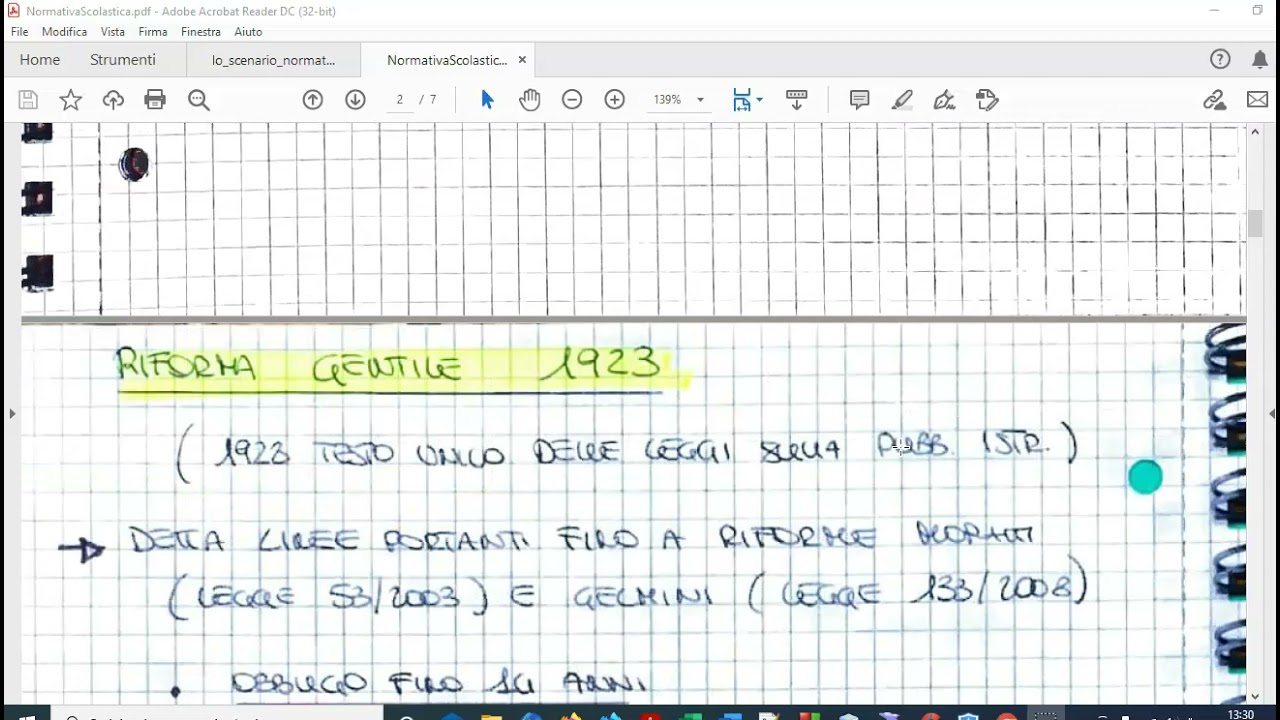 NormativaScolastica.pdf - Adobe Acrobat Reader DC (32-bit)
File Modifica Vista Firma Finestra Aiuto
Home Strumenti lo_scenario_normat... NormativaScolastic... ×
2 / 7 139%
RIFORMA GENTILE 1923
( 1923 TESTO UNICO DELLE LEGGI SULLA PUBB. ISTR. )
DETTA LINEE PORTANTI FINO A RIFORME MORATTI
( LEGGE 53/2003 ) E GELMINI ( LEGGE 133/2008 )
• OBBLIGO FINO 14 ANNI
13:30